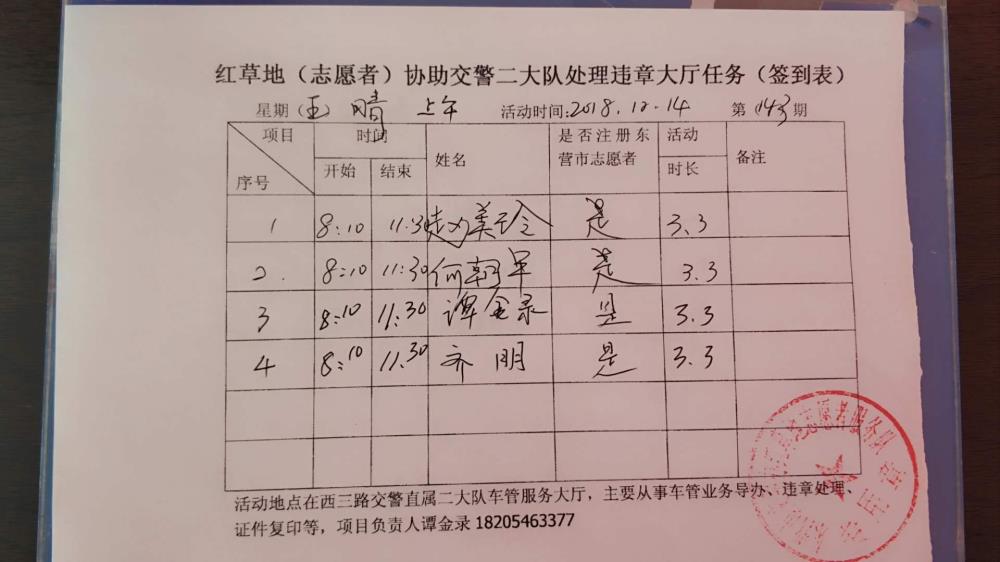 红草地（志愿者）协助交警二大队处理违章大厅任务（签到表）
星期（五） 晴 上午 活动时间:2018.12.14 第143期
项目 时间 姓名 是否注册东营市志愿者 活动时长 备注
序号 开始 结束
1 8:10 11:30 赵美玲 是 3.3
2. 8:10 11:30 何朝军 是 3.3
3 8:10 11:30 谭金录 是 3.3
4 8:10 11.30 齐明 是 3.3
活动地点在西三路交警直属二大队车管服务大厅，主要从事车管业务导办、违章处理、
证件复印等，项目负责人谭金录 18205463377
志愿者服务队